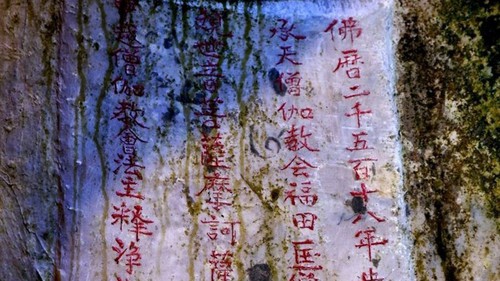 佛曆二千五百十八年
承天僧伽教会福田匡
世音菩薩摩訶薩
越僧伽教會法主釋淨